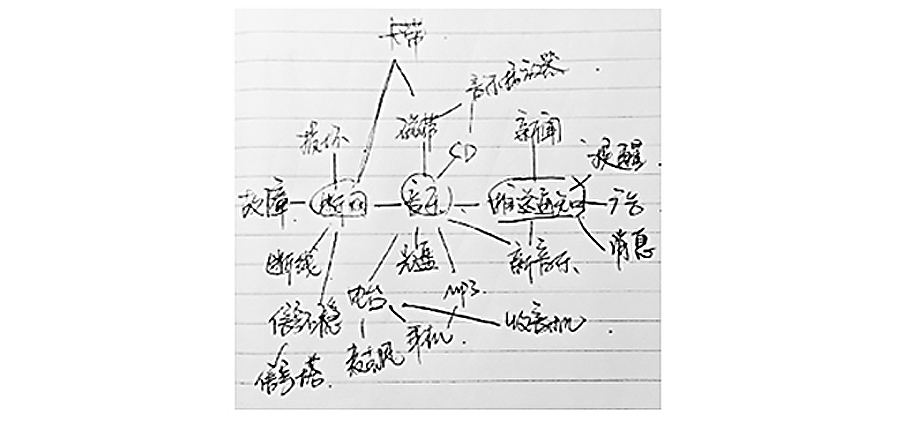 卡带
音乐播放器
磁带
损坏
新闻
CD
提醒
故障
断网
音乐
推送通知
广告
断线
光盘
新音乐
消息
电台
MP3
信号不稳
耳机
收音机
麦克风
信号塔